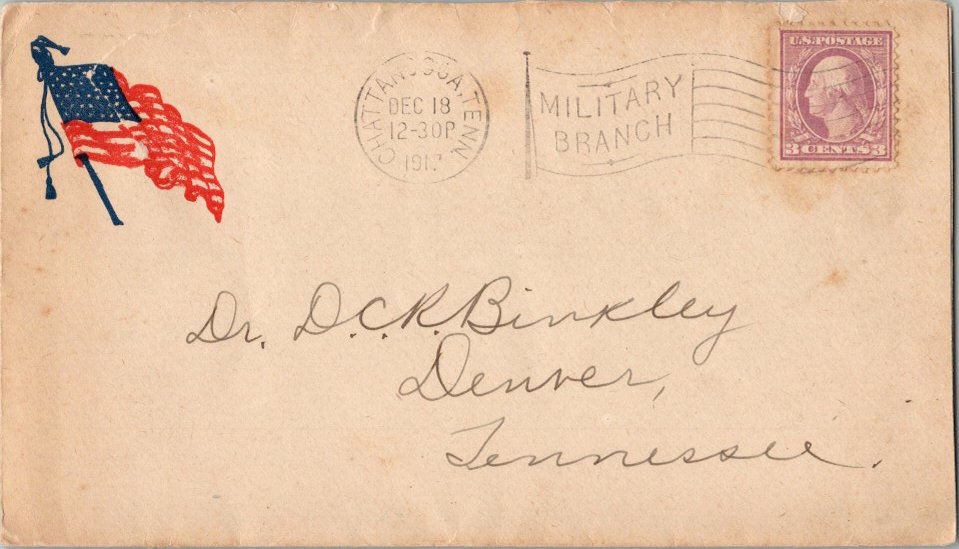 CHATTANOOGA, TENN
DEC 18
12-30P
1917
MILITARY
BRANCH
U.S. POSTAGE
3 CENTS 3
Dr. D.C.R. Binkley
Denver,
Tennessee.